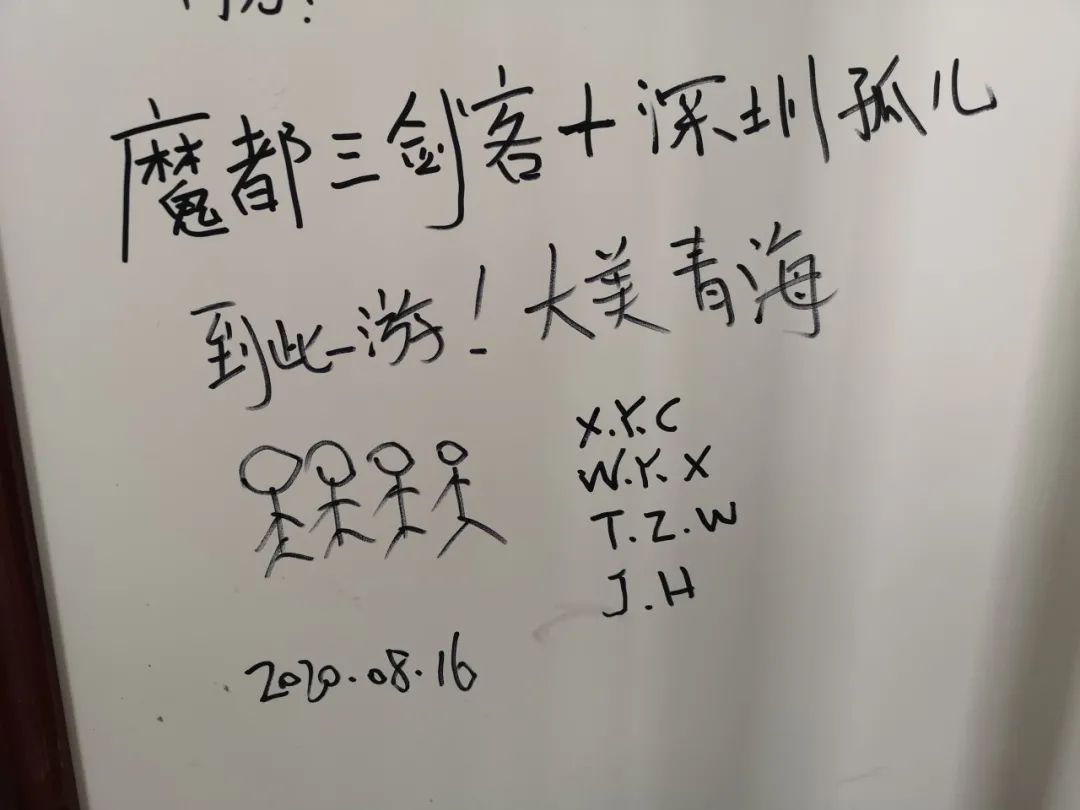 魔都三剑客+深圳孤儿
到此一游！大美青海
X.Y.C
W.Y.X
T.Z.W
J.H
2020.08.16